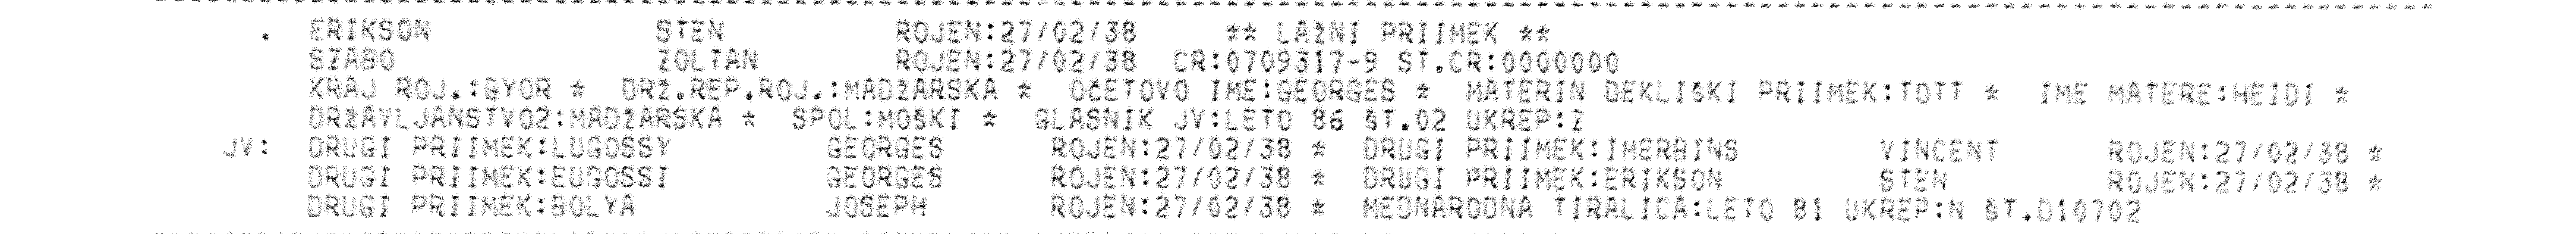 . ERIKSON STEN ROJEN:27/02/38 ** LAŽNI PRIIMEK **
SZABO ZOLTAN ROJEN:27/02/38 CR:0709317-9 ST.CR:0000000
KRAJ ROJ.:GYOR * DRŽ.REP.ROJ.:MADŽARSKA * OČETOVO IME:GEORGES * MATERIN DEKLIŠKI PRIIMEK:TOTT * IME MATERE:HEIDI *
DRŽAVLJANSTVO2:MADŽARSKA * SPOL:MOŠKI * GLASNIK JV:LETO 86 ŠT.02 UKREP:Z
JV: DRUGI PRIIMEK:LUGOSSY GEORGES ROJEN:27/02/38 * DRUGI PRIIMEK:IHERBINS VINCENT ROJEN:27/02/38 *
DRUGI PRIIMEK:EUGOSSI GEORGES ROJEN:27/02/38 * DRUGI PRIIMEK:ERIKSON STEN ROJEN:27/02/38 *
DRUGI PRIIMEK:BOLYA JOSEPH ROJEN:27/02/38 * MEDNARODNA TIRALICA:LETO 81 UKREP:N ŠT.D10702